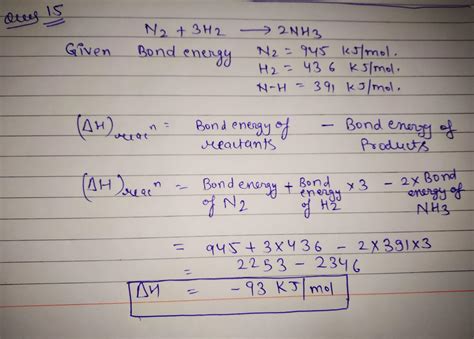 Ques 15
N2 + 3H2 → 2NH3
Given Bond energy N2 = 945 KJ/mol.
H2 = 436 KJ/mol.
N-H = 391 KJ/mol.
(ΔH)reacn = Bond energy of reactants - Bond energy of Products
(ΔH)reacn = Bond energy of N2 + Bond energy of H2 × 3 - 2× Bond energy of NH3
= 945 + 3×436 - 2×391×3
= 2253 - 2346
ΔH = -93 KJ/mol